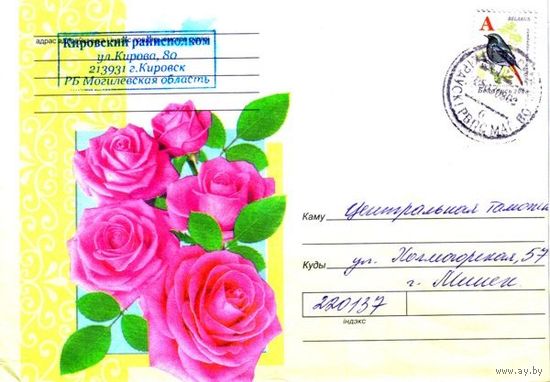 адрас
Кировский райисполком
ул.Кирова, 80
213931 г.Кировск
РБ Могилевская область
А
BELARUS
Беларусь
Каму Центральная Таможн
Куды ул. Холмогорская, 57
г. Минск
220137
індэкс
www.ay.by